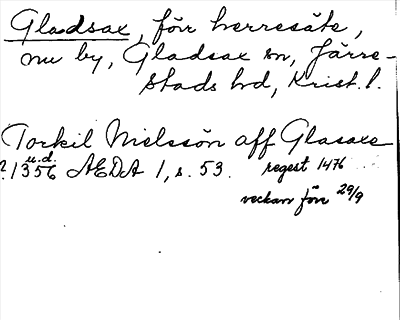 Gladsax, förr herresäte,
nu by, Gladsax sn, Järre-
stads hd, Krist. l.
Torkil Nielssön aff Glasaxe
u.d.
?1356 AEDA 1, s. 53. regest 1476
veckan före 29/9